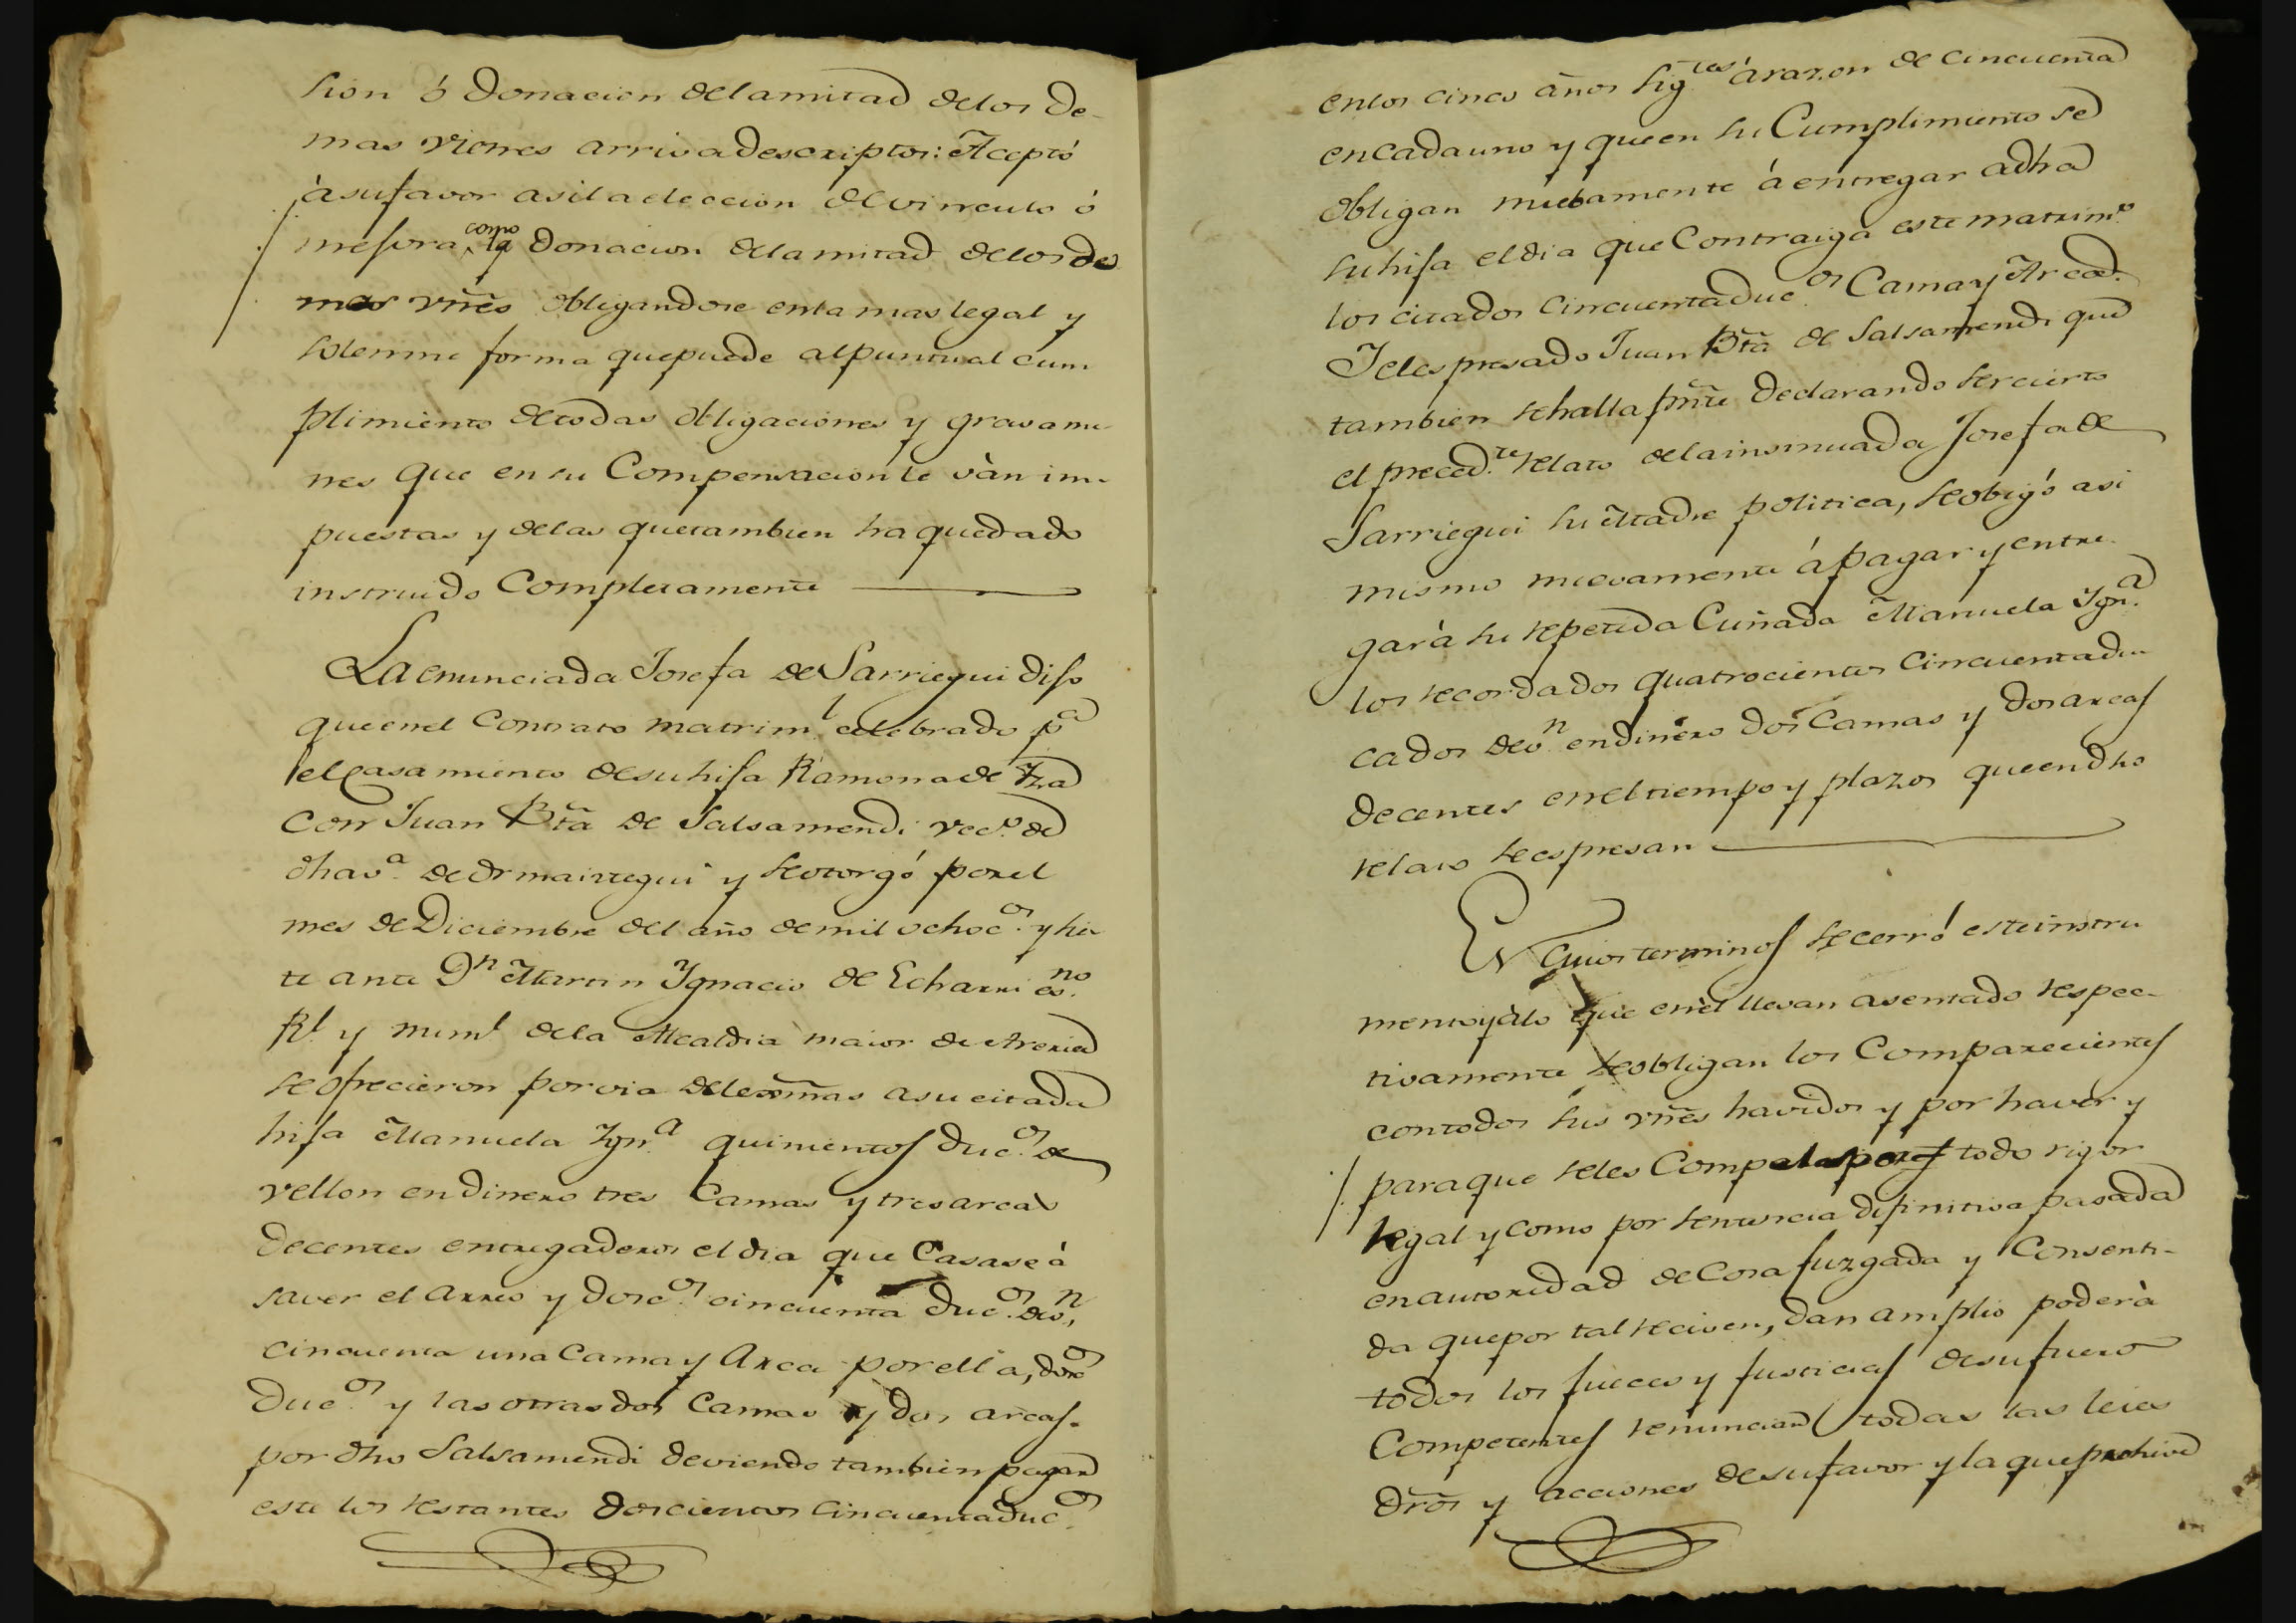 sion ó Donacion de la mitad de los de-
mas vienes arriva descriptos: Aceptó
à su favor asi la eleccion del vinculo ó
mejora, como la donacion de la mitad de los de
mas vñes obligandose en la mas legal y
solemne forma que puede al puntual cum
plimiento de todas obligaciones y gravame
nes que en su Compensacion le vàn im-
puestas y de las que tambien ha quedado
instruido Completamente
La enunciada Josefa de Sarriegui dijo
que en el Contrato matrim.l celebrado p.a
el Casamiento de su hija Ramona de Yza
con Juan Bta de Salsamendi vec.o de
dha v.a de Ormaiztegui y se otorgó por el
mes de Diciembre del año de mil ochoc.os y sie
te ante D.n Martin Ygnacio de Echarri es.no
R.l y num.l de la Alcaldia maior de Areria
se ofrecieron por via de lexmas a su citada
hija Manuela Ygn.a quinientos duc.os de
vellon en dinero tres Camas y tres arcas
decentes entregaderos el dia que Casase à
saver el arreo y dosc.os cincuenta duc.os de v.n,
cincuenta una Cama y Arca por ella, dosc.os
Duc.os y las otras dos Camas y dos arcas
por dho Salsamendi deviendo tambien pagar
este los restantes doscientos cincuenta duc.os
en los cinco años sig.tes á razon de cincuenta
en cada uno y que en su Cumplimiento se
obligan nuebamente á entregar a dha
su hija el dia que Contraiga este matrim.o
los citados cincuenta duc.os Cama y Arca.
Y el espresado Juan Bta de Salsamendi que
tambien se halla pnte declarando ser cierto
el preced.te relato de la insinuada Josefa de
Sarriegui su Madre politica, se obigó asi
mismo nuevamente á pagar y entre
gar à su repetida Cuñada Manuela Ygn.a
los recordados quatrocientos cincuenta du
cados de v.n en dinero dos Camas y dos arcas
decentes en el tiempo y plazos que en dho
relato se espresan
En cuios terminos se cerró este instru
mento y à lo que en èl llevan asentado respec-
tivamente se obligan los Comparecientes
con todos sus vñes havidos y por havèr y
para que se les Compela por todo rigor
legal y como por sentencia difinitiva pasada
en autoridad de Cosa juzgada y Consenti-
da que por tal reciven, dan amplio poder à
todos los jueces y justicias de su fuero
Competentes renuncian todas las leies
drõs y acciones de su favor y la que prohive